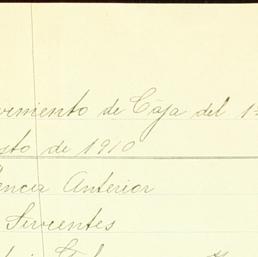 vimiento de Caja del 1
sto de 1910
encia Anterior
Sirvientes